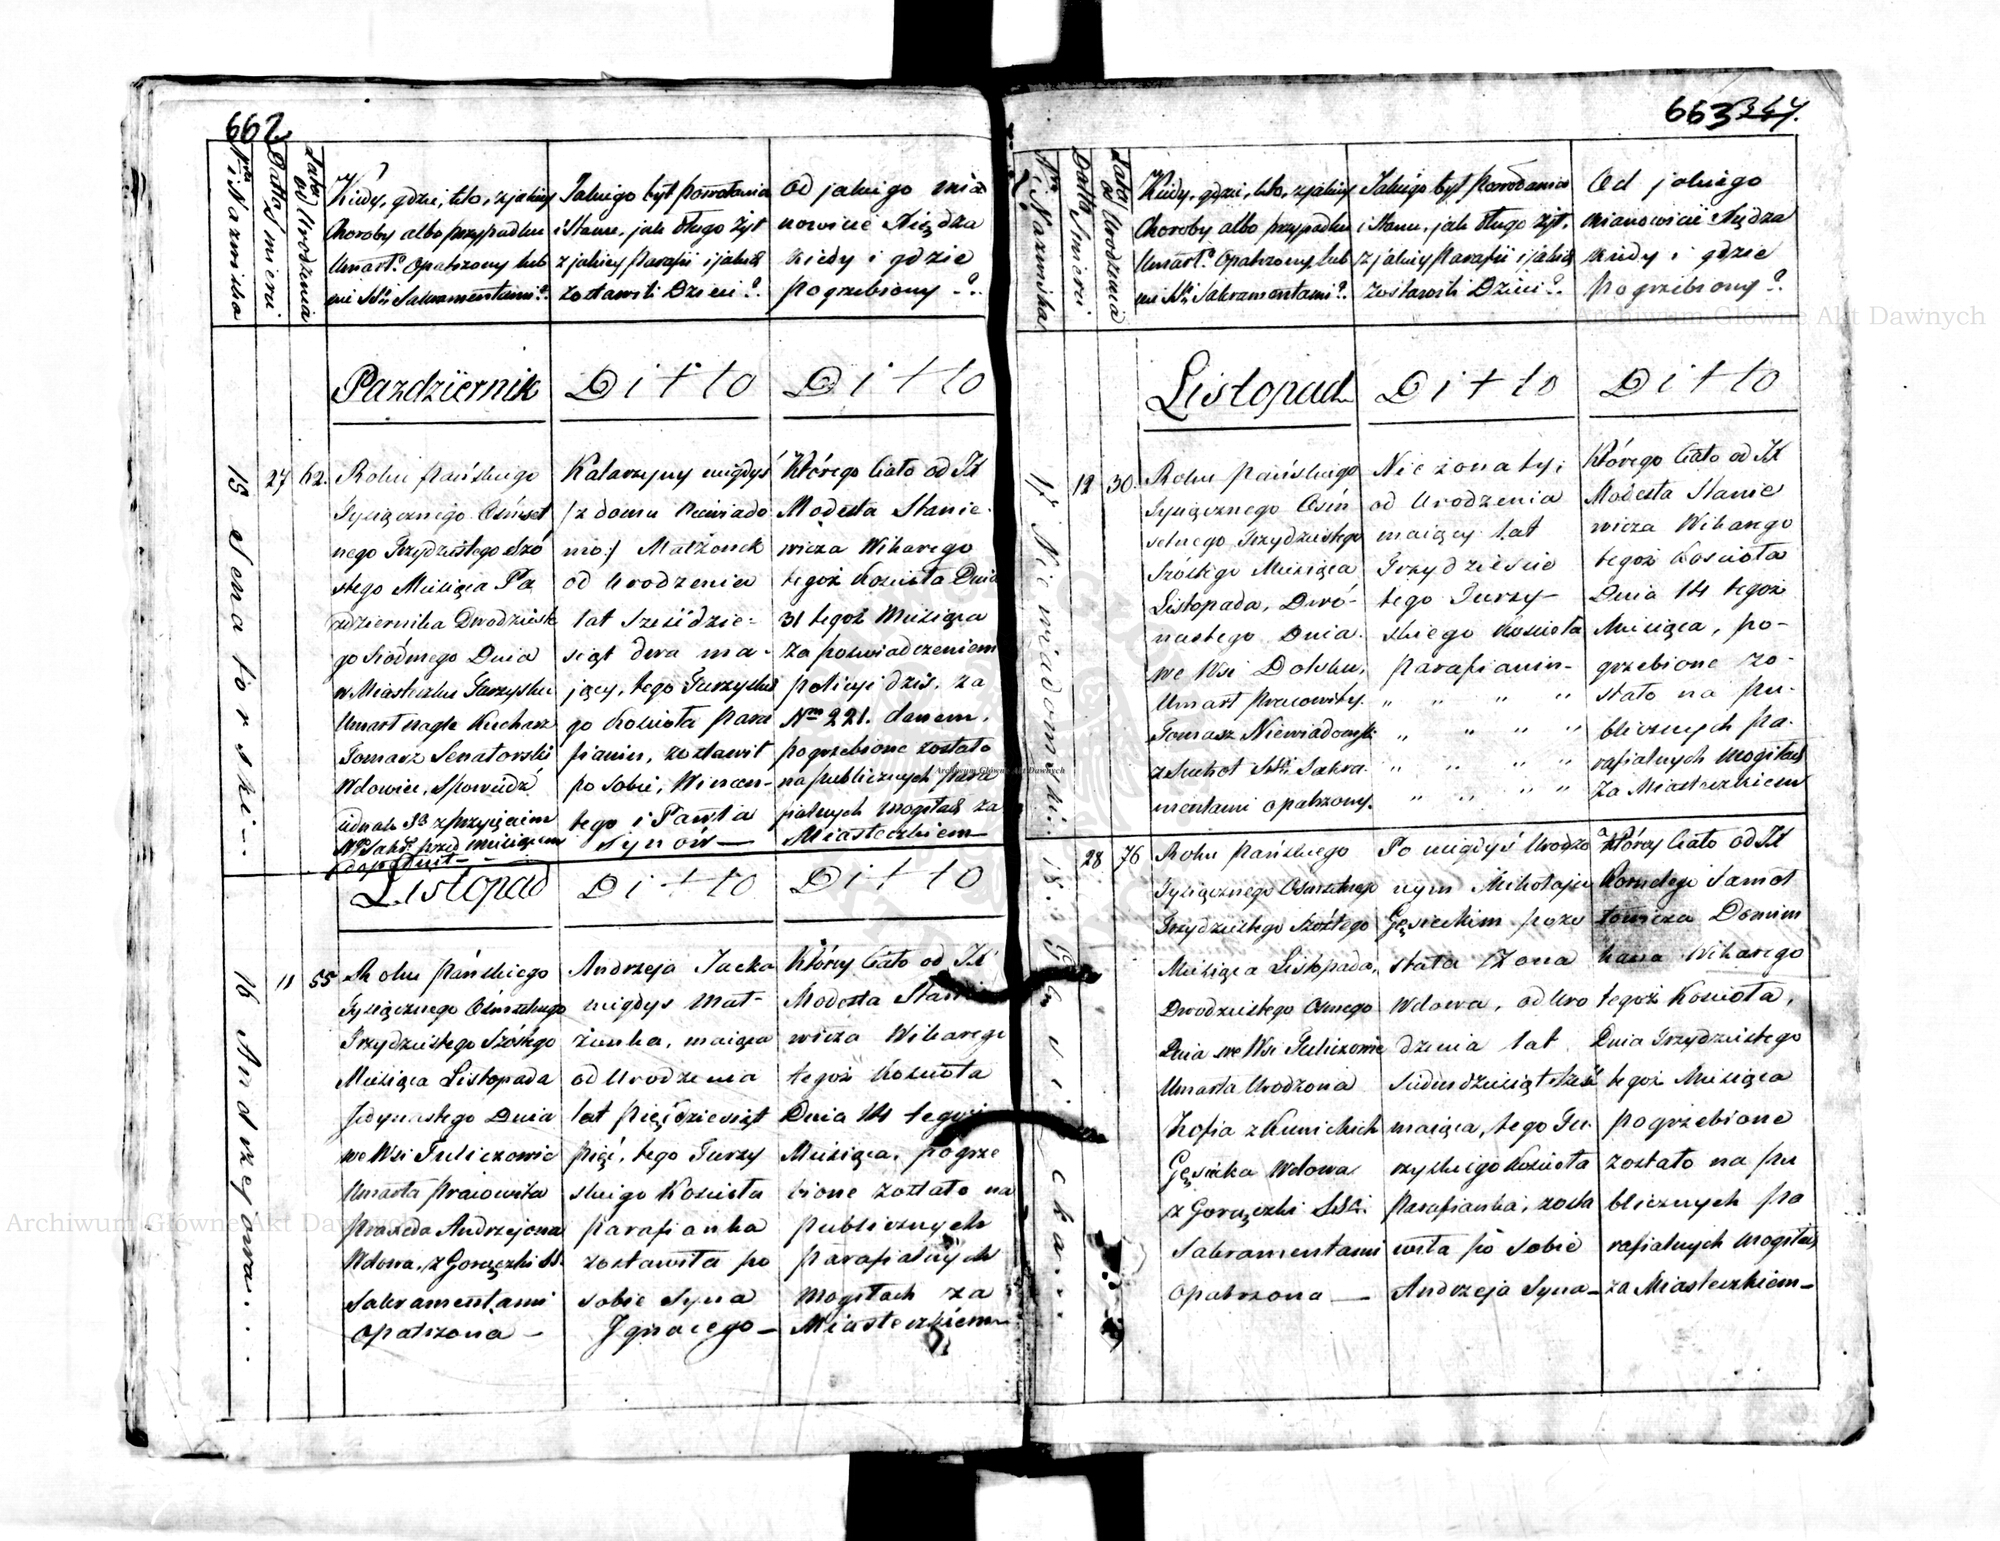 662
N.r i Nazwiska
Datta Śmierci
Lata od Urodzenia
Kiedy, gdzie, kto, z jakiey
Choroby albo przypadku
Umarł? Opatrzony lub
nie SS. Sakramentami?
Jakiego był Powołania
i Stanu, jak długo żył
z jakiey Parafii i jakie
zostawił Dzieci?
Od jakiego mia
nowicie Xiędza
kiedy i gdzie
pogrzebiony?
Pazdziernik
Ditto
Ditto
15 Senatorski
27
62.
Roku Pańskiego
Tysiącznego Ośmset
nego Trzydziestego Szó
stego Miesiąca Pa
zdziernika Dwodziest
go Siódmego Dnia
w Miasteczku Turzysku
Umarł nagle Kucharz
Tomasz Senatorski
Wdowiec, Spowiedź
przed Miesiącem
Katarzyny niegdyś
(z domu Niewiado
mo) Małżonek
od Urodzenia
lat Sześćdzie-
siąt dwa ma-
jący, tego Turzyskie
go Kościoła Para
fianin, zostawił
po sobie, Wincen-
tego i Pawła
Synów
Którego Ciało od JX
Modesta Stanie-
wicza Wikarego
tegoż Kościoła Dnia
31 tegoż Miesiąca
za poświadczeniem
policyi dziś. za
N.m 221. danem,
pogrzebione zostało
na publicznych para
fialnych Mogiłach za
Miasteczkiem
Listopad
Ditto
Ditto
16 Andrzejowa
11
55
Roku Pańskiego
Tysiącznego Ośmsetnego
Trzydziestego Szóstego
Miesiąca Listopada
Jedynastego Dnia
we Wsi Tuliczowie
Umarła Pracowita
Praxeda Andrzejowa
Wdowa, z Gorączki SS.
Sakramentami
Opatrzona
Andrzeja Jacka
niegdys Mał-
żonka, maiąca
od Urodzenia
lat Pięćdziesiąt
Pięć, tego Turzy
skiego Kościoła
Parafianka
zostawiła po
sobie Syna
Ignacego
Którey Ciało od JX
Modesta Stanie
wicza Wikarego
tegoż Kościoła
Dnia 14 tegoż
Miesiąca, pogrze
bione zostało na
publicznych
Parafialnych
Mogiłach za
Miasteczkiem
663
N.r i Nazwiska
Datta Śmierci
Lata od Urodzenia
Kiedy, gdzie, kto, z jakiey
Choroby albo przypadku
Umarł? Opatrzony lub
nie SS. Sakramentami?
Jakiego był Powołania
i Stanu, jak długo żył,
z jakiey Parafii i jakie
zostawił Dzieci?
Od jakiego
mianowicie Xiędza
kiedy i gdzie
pogrzebiony?
Listopad
Ditto
Ditto
17 Niewiadomski
12
30.
Roku Pańskiego
Tysiącznego Ośm
setnego Trzydziestego
Szóstego Miesiąca
Listopada, Dwó-
nastego Dnia
we Wsi Dolsku,
Umarł Pracowity
Tomasz Niewiadomsk
z Suchot SS. Sakra
mentami opatrzony.
Nie żonaty,
od Urodzenia
maiący lat
Trzydzieście
tego Turzy-
skiego Kościoła
Parafianin-
Którego Ciało od JX
Modesta Stanie
wicza Wikarego
tegoż Kościoła
Dnia 14 tegoż
Miesiąca, po-
grzebione zo-
stało na pu-
blicznych Pa-
rafialnych Mogiłach
za Miasteczkiem
18. Gęsicka
28
76
Roku Pańskiego
Tysiącznego Ośmsetnego
Trzydziestego Szóstego
Miesiąca Listopada,
Dwodziestego Osmego
Dnia we Wsi Tuliczowie
Umarła Urodzona
Zofia z Kunickich
Gęsicka Wdowa
z Gorączki SS.
Sakramentami
Opatrzona
Po niegdyś Urodzo
nym Mikołaju
Gęsieckim pozo
stała Żona
Wdowa, od Uro
dzenia lat
Siedmdziesiąt Sześć
maiąca, tego Tu-
rzyskiego Kościoła
Parafianka, zosta
wiła po sobie
Andrzeja Syna
Którey Ciało od JX
Kornelego Samoł
towicza Domini
kana Wikarego
tegoż Kościoła,
Dnia Trzydziestego
tegoż Miesiąca
pogrzebione
zostało na pu
blicznych Pa
rafialnych Mogiłach
za Miasteczkiem
Archiwum Główne Akt Dawnych
Archiwum Główne Akt Dawnych
Archiwum Główne Akt Dawnych